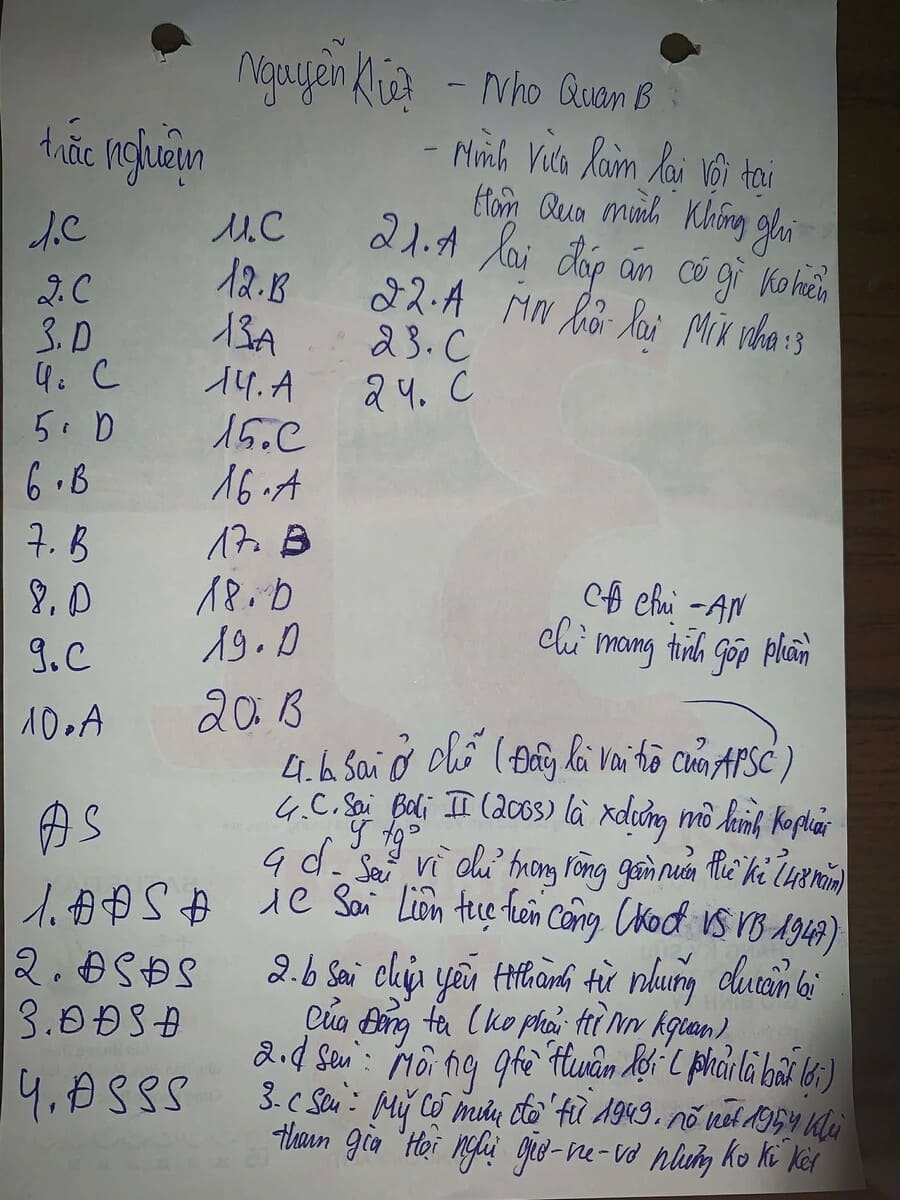 Nguyễn Kiệt - Nho Quan B
trắc nghiệm
- Mình vừa làm lại vội tại
Hôm qua mình không ghi
lại đáp án có gì ko hiểu
MN hỏi lại Mik nha :3
1.C
2.C
3.D
4. C
5. D
6.B
7.B
8.D
9.C
10.A
11.C
12.B
13A
14.A
15.C
16.A
17.B
18.D
19.D
20.B
21.A
22.A
23.C
24.C
CĐ chị -AN
chỉ mang tính góp phần
4.b sai ở chỗ (Đây là vai trò của APSC)
4.C. Sai Bali II (2003) là xdựng mô hình ko phải
ý tg
4 d - Sai vì chỉ trong ròng gần nửa thế kỉ (48 năm)
ĐS
1.ĐĐSĐ
2.ĐSĐS
3.ĐĐSĐ
4.ĐSSS
1C Sai Liên tục tiến công (ko đ vs VB 1947)
2.b sai chủ yếu Hthành từ những chuẩn bị
của Đảng ta (ko phải từ NN kquan)
2.d sai: Môi tng qtế thuận lợi (phải là bất lợi)
3.c sai: Mỹ có mưu đồ từ 1949. rõ nét 1954 khi
tham gia Hội nghị giơ-ne-vơ nhưng ko kí kết